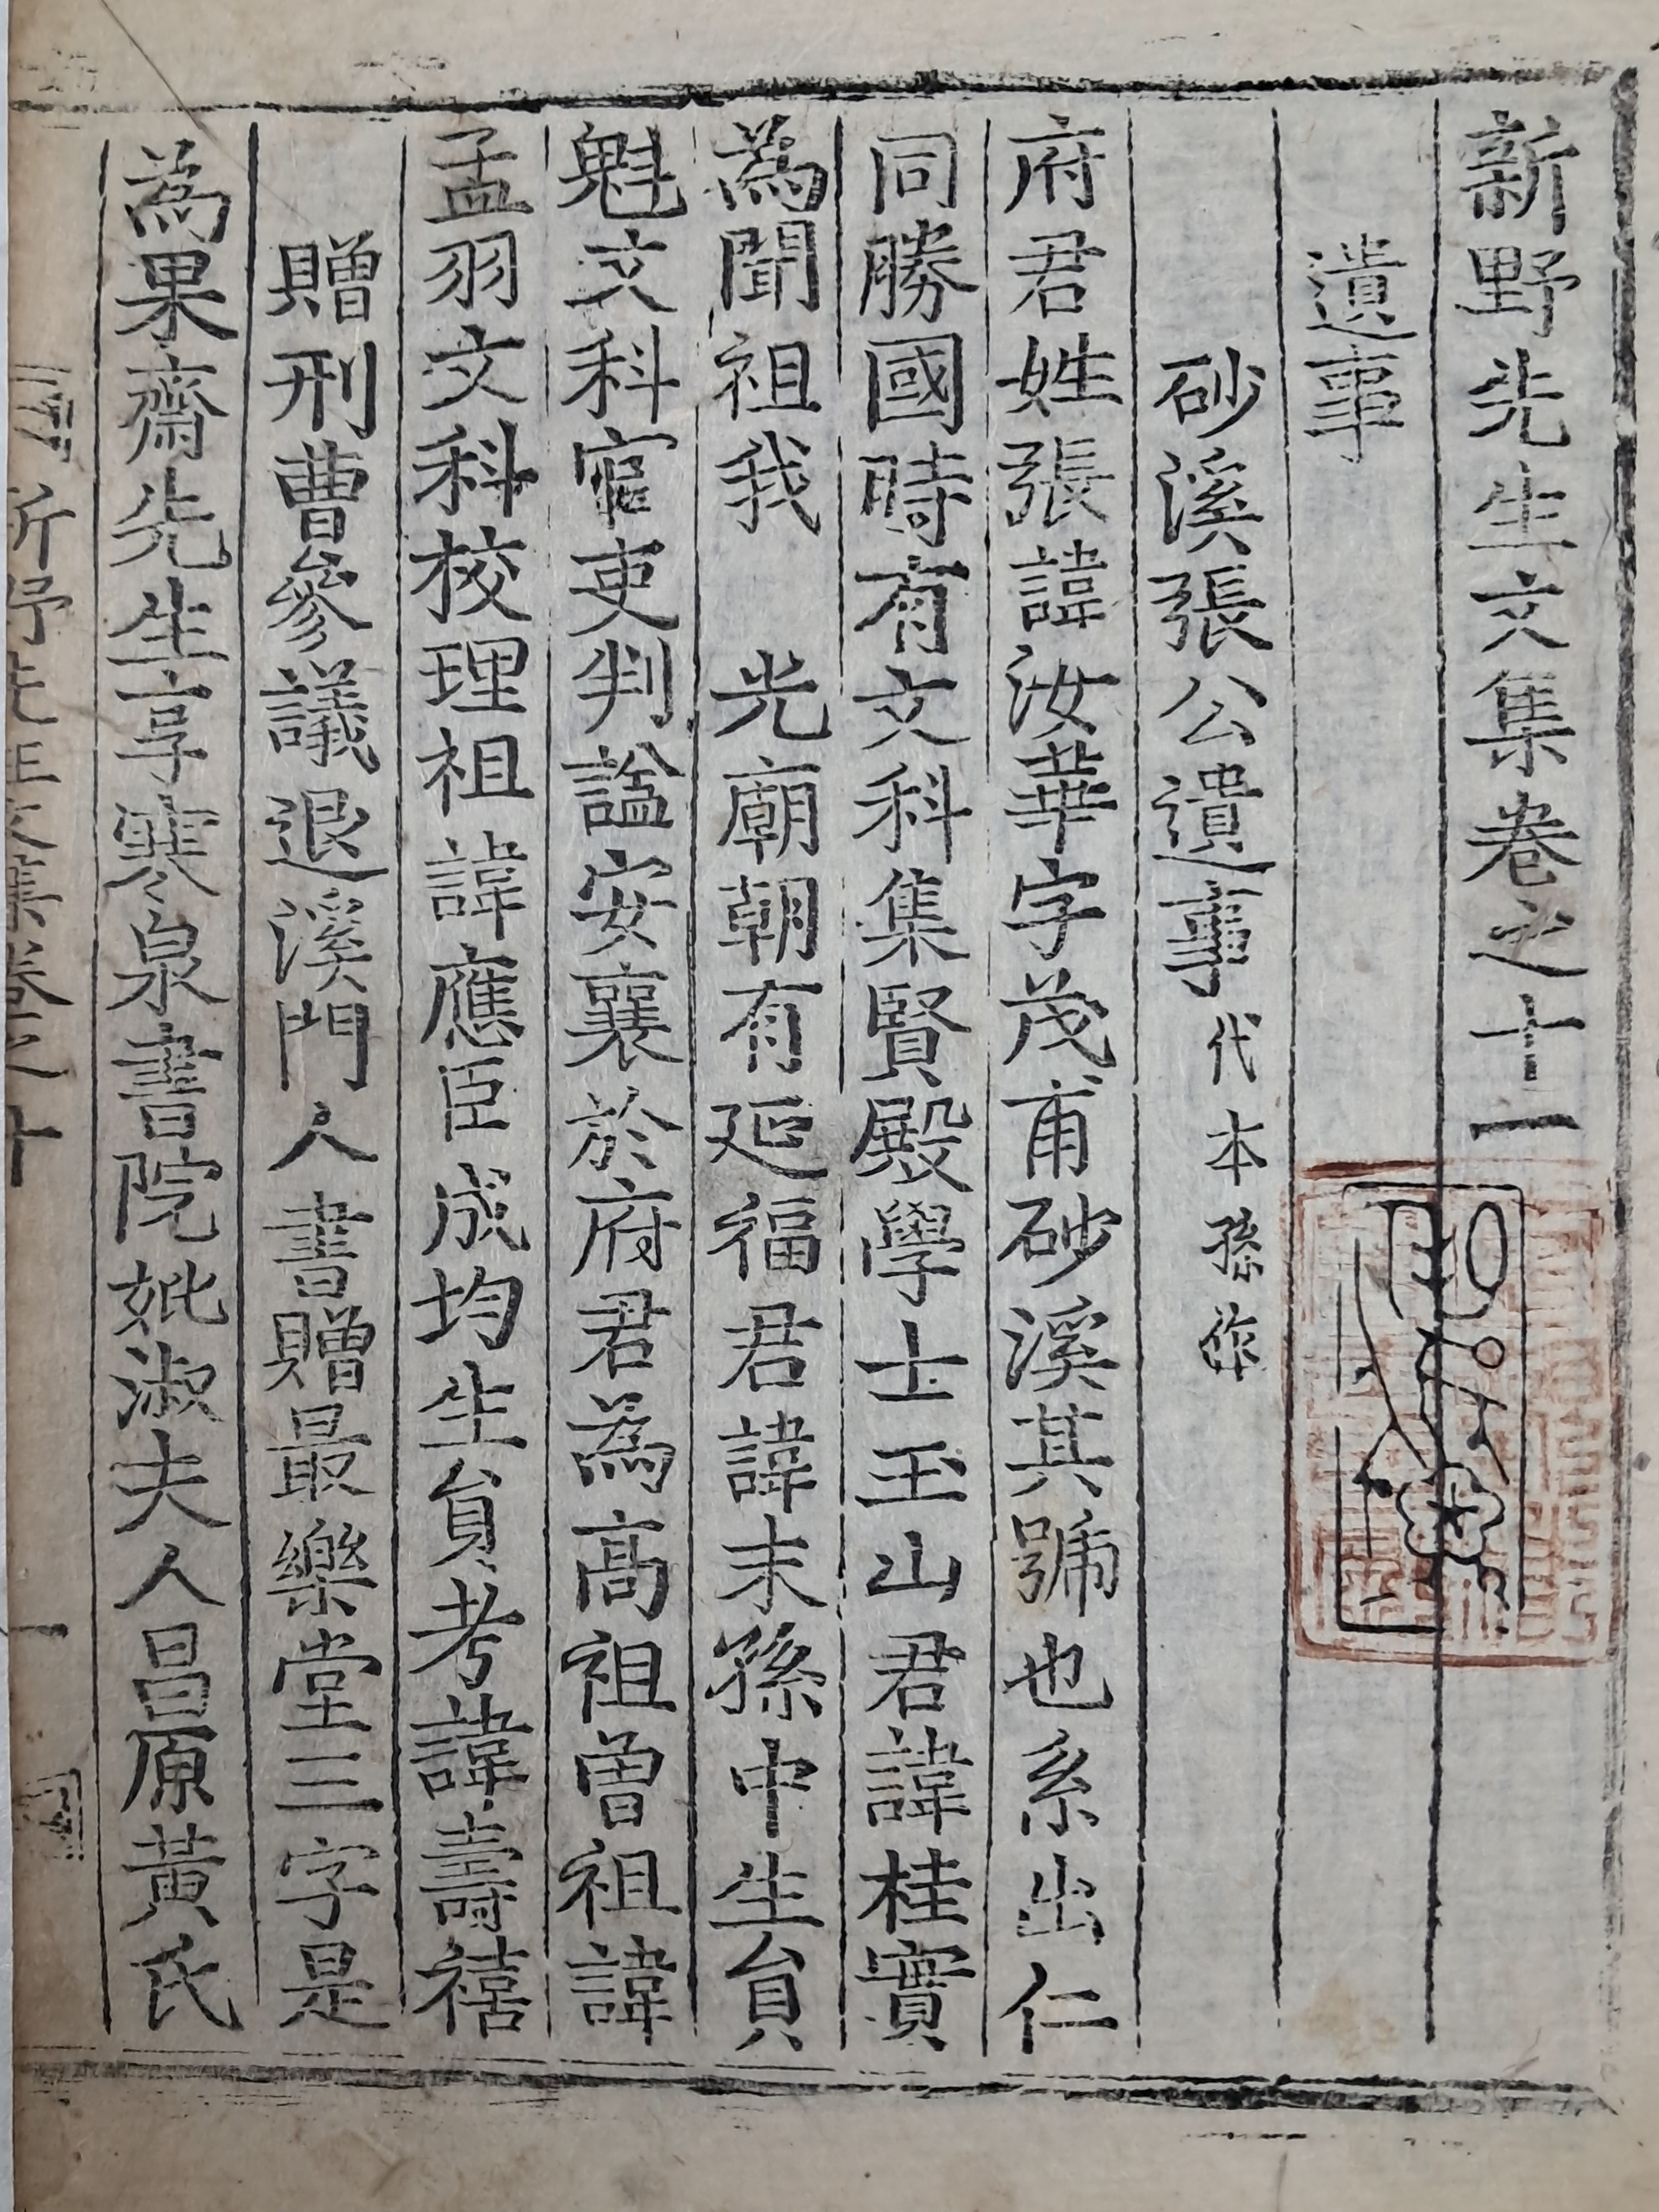 新野先生文集卷之十一
遺事
砂溪張公遺事代本孫作
府君姓張諱汝華字茂甫砂溪其號也系出仁
同勝國時有文科集賢殿學士玉山君諱桂實
為聞祖我 光廟朝有延福君諱末孫中生員
魁文科官吏判諡安襄於府君為高祖曾祖諱
孟羽文科校理祖諱應臣成均生員考諱壽禧
贈刑曹參議退溪門人書贈最樂堂三字是
為果齋先生享寒泉書院妣淑夫人昌原黃氏
新野先生文集卷之十一